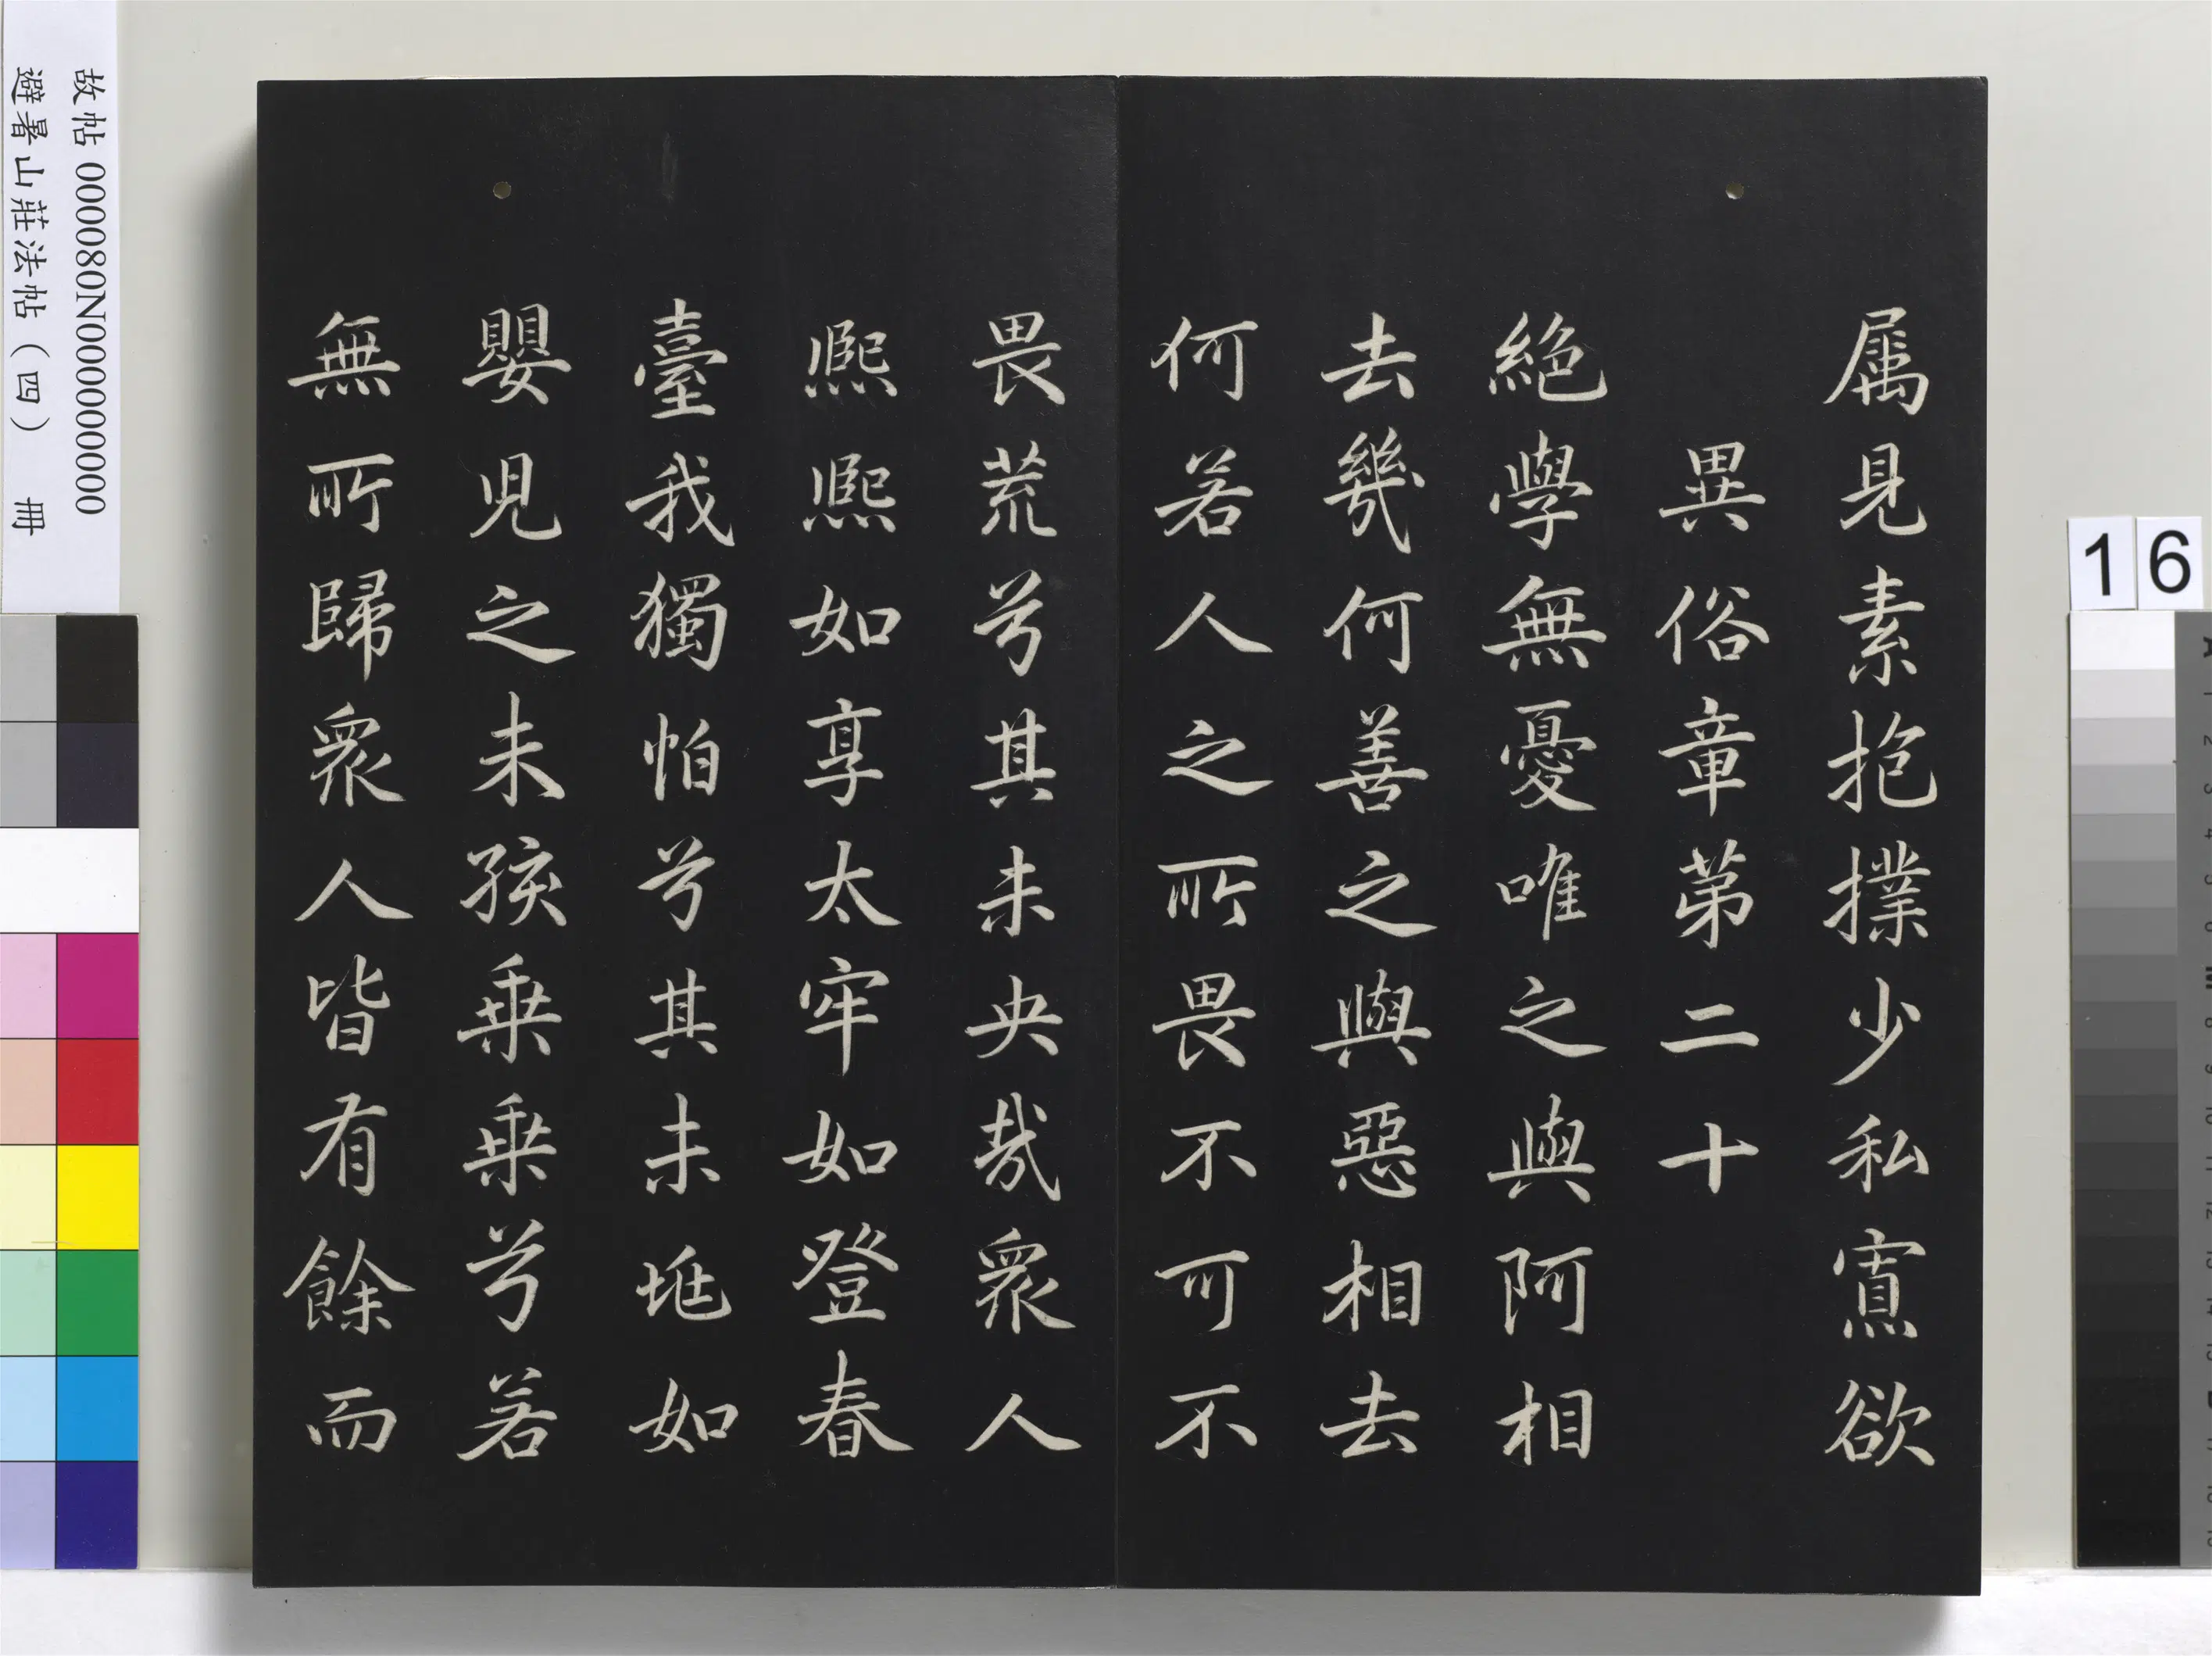 属見素抱撲少私寡欲
異俗章第二十
絶學無憂唯之與阿相
去幾何善之與惡相去
何若人之所畏不可不
畏荒兮其未央哉衆人
熙熙如享太牢如登春
臺我獨怕兮其未兆如
嬰兒之未孩乗乗兮若
無所歸衆人皆有餘而
故帖 000080N000000000
避暑山莊法帖(四) 冊
16